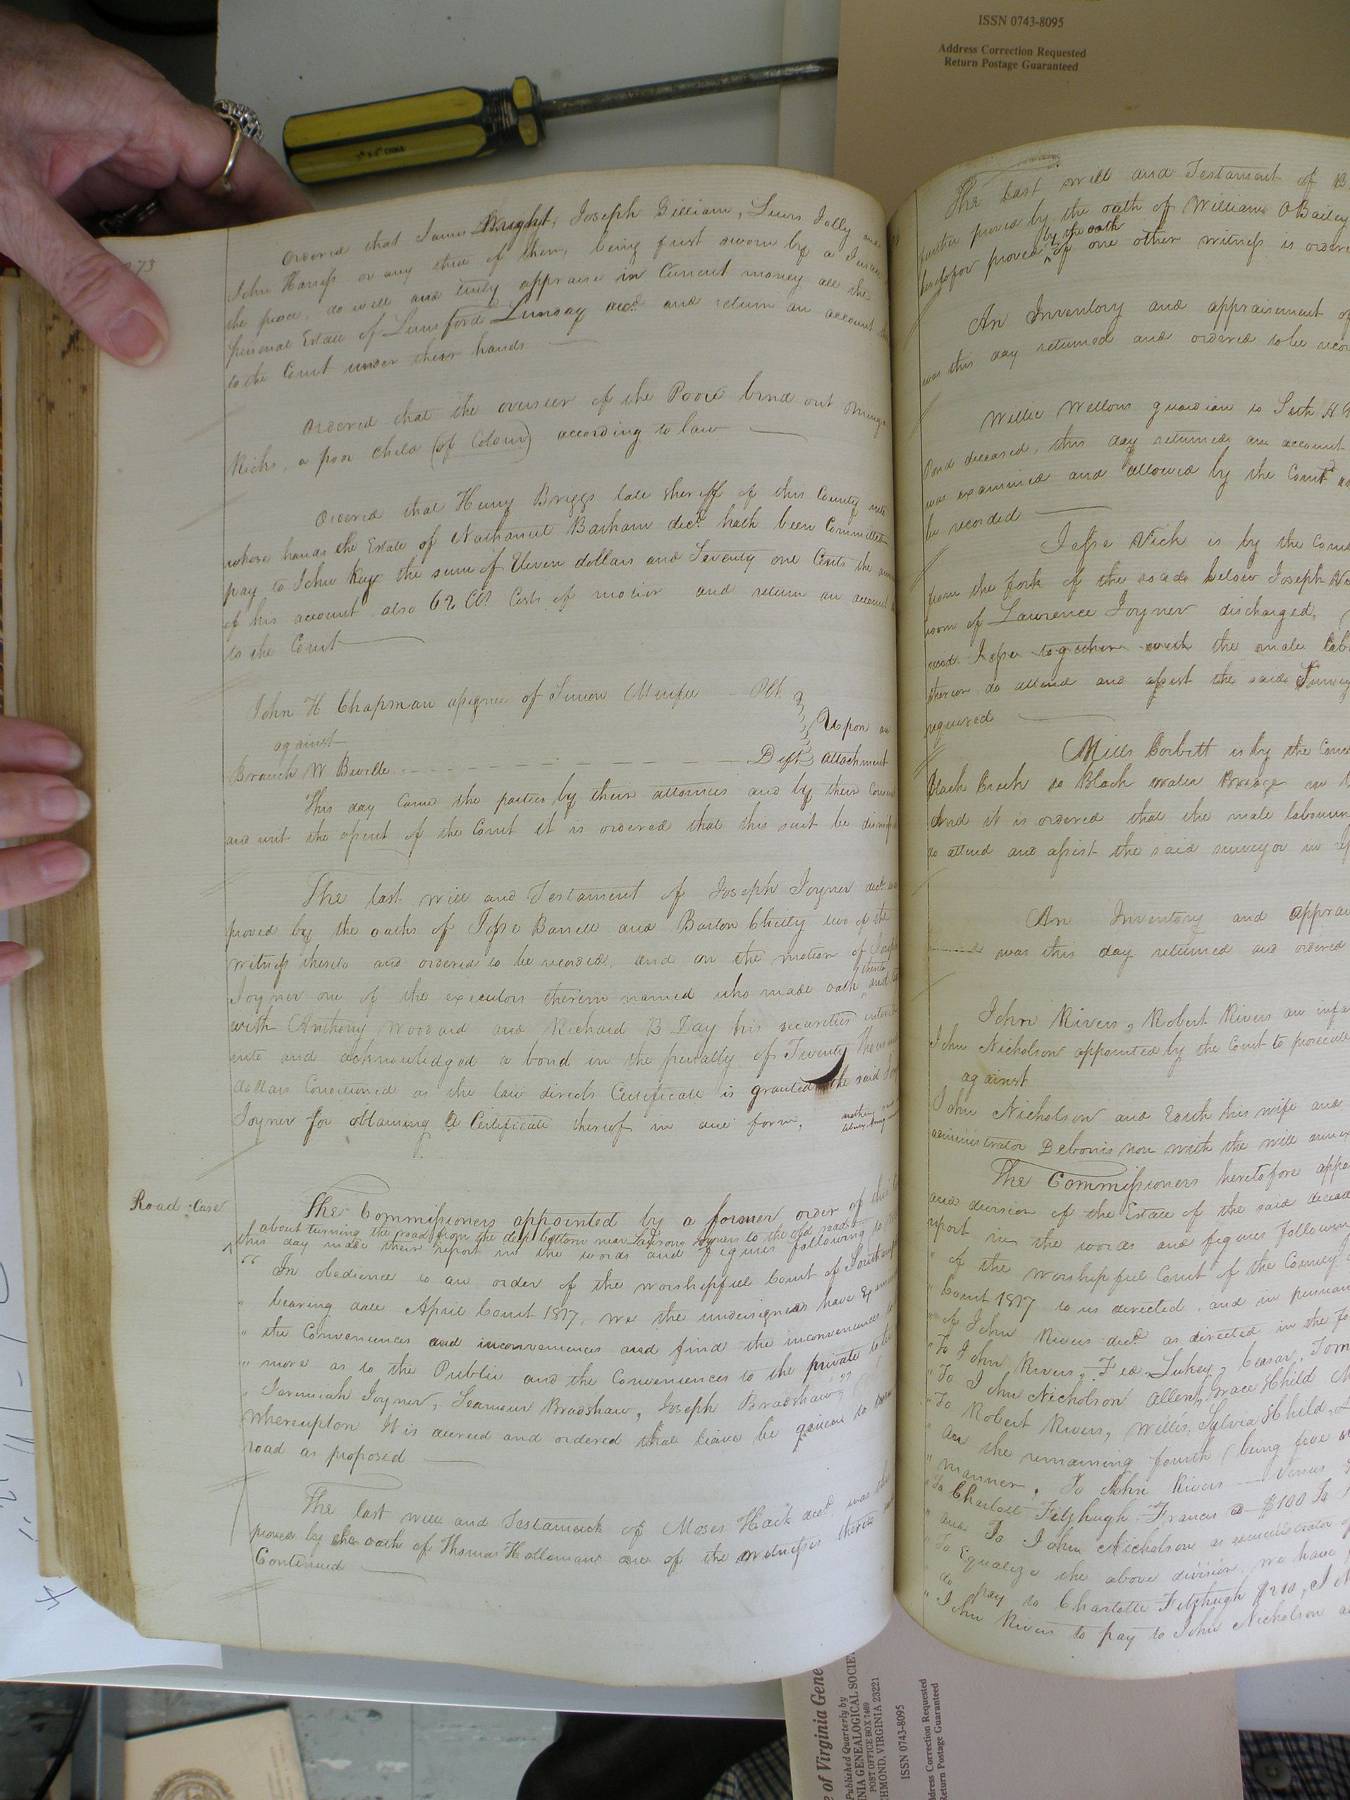 ISSN 0743-8095
Address Correction Requested
Return Postage Guaranteed
273
Ordered that James Bright, Joseph Gilliam, Lewis Jolly and
John Harriss or any three of them, being first sworn by a Justice
the peace, do well and truly appraise in Current money all the
personal Estate of Lunsford Lunsay decd. and return an account
to the Court under their hands
Ordered that the overseer of the Poor bind out
Ricks, a poor child (of Colour) according to law
Ordered that Henry Briggs late sheriff of this County into
whose hands the Estate of Nathaniel Barham decd. hath been Committed
pay to John Kay the sum of Eleven dollars and Seventy one Cents the amount
of his account also 62 Costs of motion and return an account
to the Court
John H Chapman assignee of Simon Murfee Plt
Upon an
against
Branch W Beville Deft attachment
This day came the parties by their attornies and by their Consent
and with the assent of the Court it is ordered that this suit be dismissed
The last will and Testament of Joseph Joyner decd. was
proved by the oaths of Jesse Barrett and Barton Chitty two of the
witness thereto and ordered to be recorded, and on the motion of Joseph
Joyner one of the executors therein named who made oath thereto and
with Anthony Woodard and Richard B Day his securities entered
into and acknowledged a bond in the penalty of Twenty Thousand
dollars Conditioned as the law directs Certificate is granted the said
Joyner for obtaining a Certificate thereof in due form,
Road Case
The Commissioners appointed by a former order of this
about turning the road from the deep bottom near Joyners to the old road
this day made their report in the words and figures following to
" In obedience to an order of the worshipful Court of Southampton
bearing date April Court 1817, we the undersigned have Examined
" the Conveniences and inconveniences and find the inconvenience
" more as to the Public and the Conveniences to the private to be
" Jeremiah Joyner, Seamour Bradshaw, Joseph Bradshaw"
whereupon It is decreed and ordered that leave be given to turn
road as proposed
The last will and Testament of Moses Hack decd. was this
proved by the oath of Thomas Holloman one of the witnesses thereto
Continued
The last will and Testament of B
further proved by the oath of William O Bailey
heretofor proved by the oath of one other witness is ordered
An Inventory and appraisement of
was this day returned and ordered to be recorded
Willie Wellons guardian to Seth H
Pond deceased, this day returned an account
was examined and allowed by the Court and
be recorded
Jesse Vick is by the Court
from the fork of the roads below Joseph
room of Lawrence Joyner discharged,
said Jesse together with the male lab
thereon do attend and assist the said Survey
required
Mills Corbitt is by the Court
Black Creek to Black water Bridge in
And it is ordered that the male labouring
do attend and assist the said surveyor in
An Inventory and apprai
was this day returned and ordered
John Rivers, Robert Rivers an infant
John Nicholson appointed by the Court to prosecute
against
John Nicholson and his wife and
administrator Debonis non with the will annexed
The Commissioners heretofore appo
and division of the Estate of the said deceased
report in the words and figures following
" of the worshipful Court of the County
" Court 1817 to us directed, and in pursuance
" of John Rivers decd. as directed in the fo
" To John Rivers, Fed Lukey, Ceasar, Tom
" To John Nicholson Allen, Grace & Child
" To Robert Rivers, Willis, Sylvia & Child,
" as the remaining fourth (being five
" manner, To John Rivers Venus
" To Charlotte Fitzhugh Francis @ $100 To
" and To John Nicholson as administrator of
" To Equalize the above division, we have
" to pay to Charlotte Fitzhugh $210, J
" John Rivers to pay to John Nicholson
of Virginia Gene
Published Quarterly by
INIA GENEALOGICAL SOCIE
POST OFFICE BOX 7469
HMOND, VIRGINIA 23221
ISSN 0743-8095
ddress Correction Requested
Return Postage Guaranteed